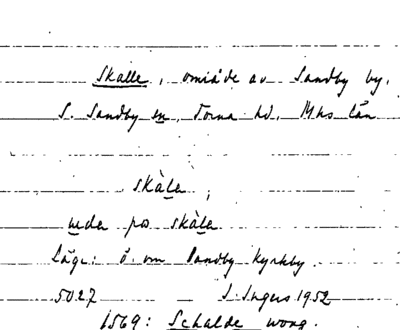 Skalle, område av Sandby by,
S. Sandby sn, Torna hd, Mhs län
skàla,
uda po skàla
Läge: ö. om Sandby kyrkby.
5027 I. Ingers 1952
1569: Schalde wong.